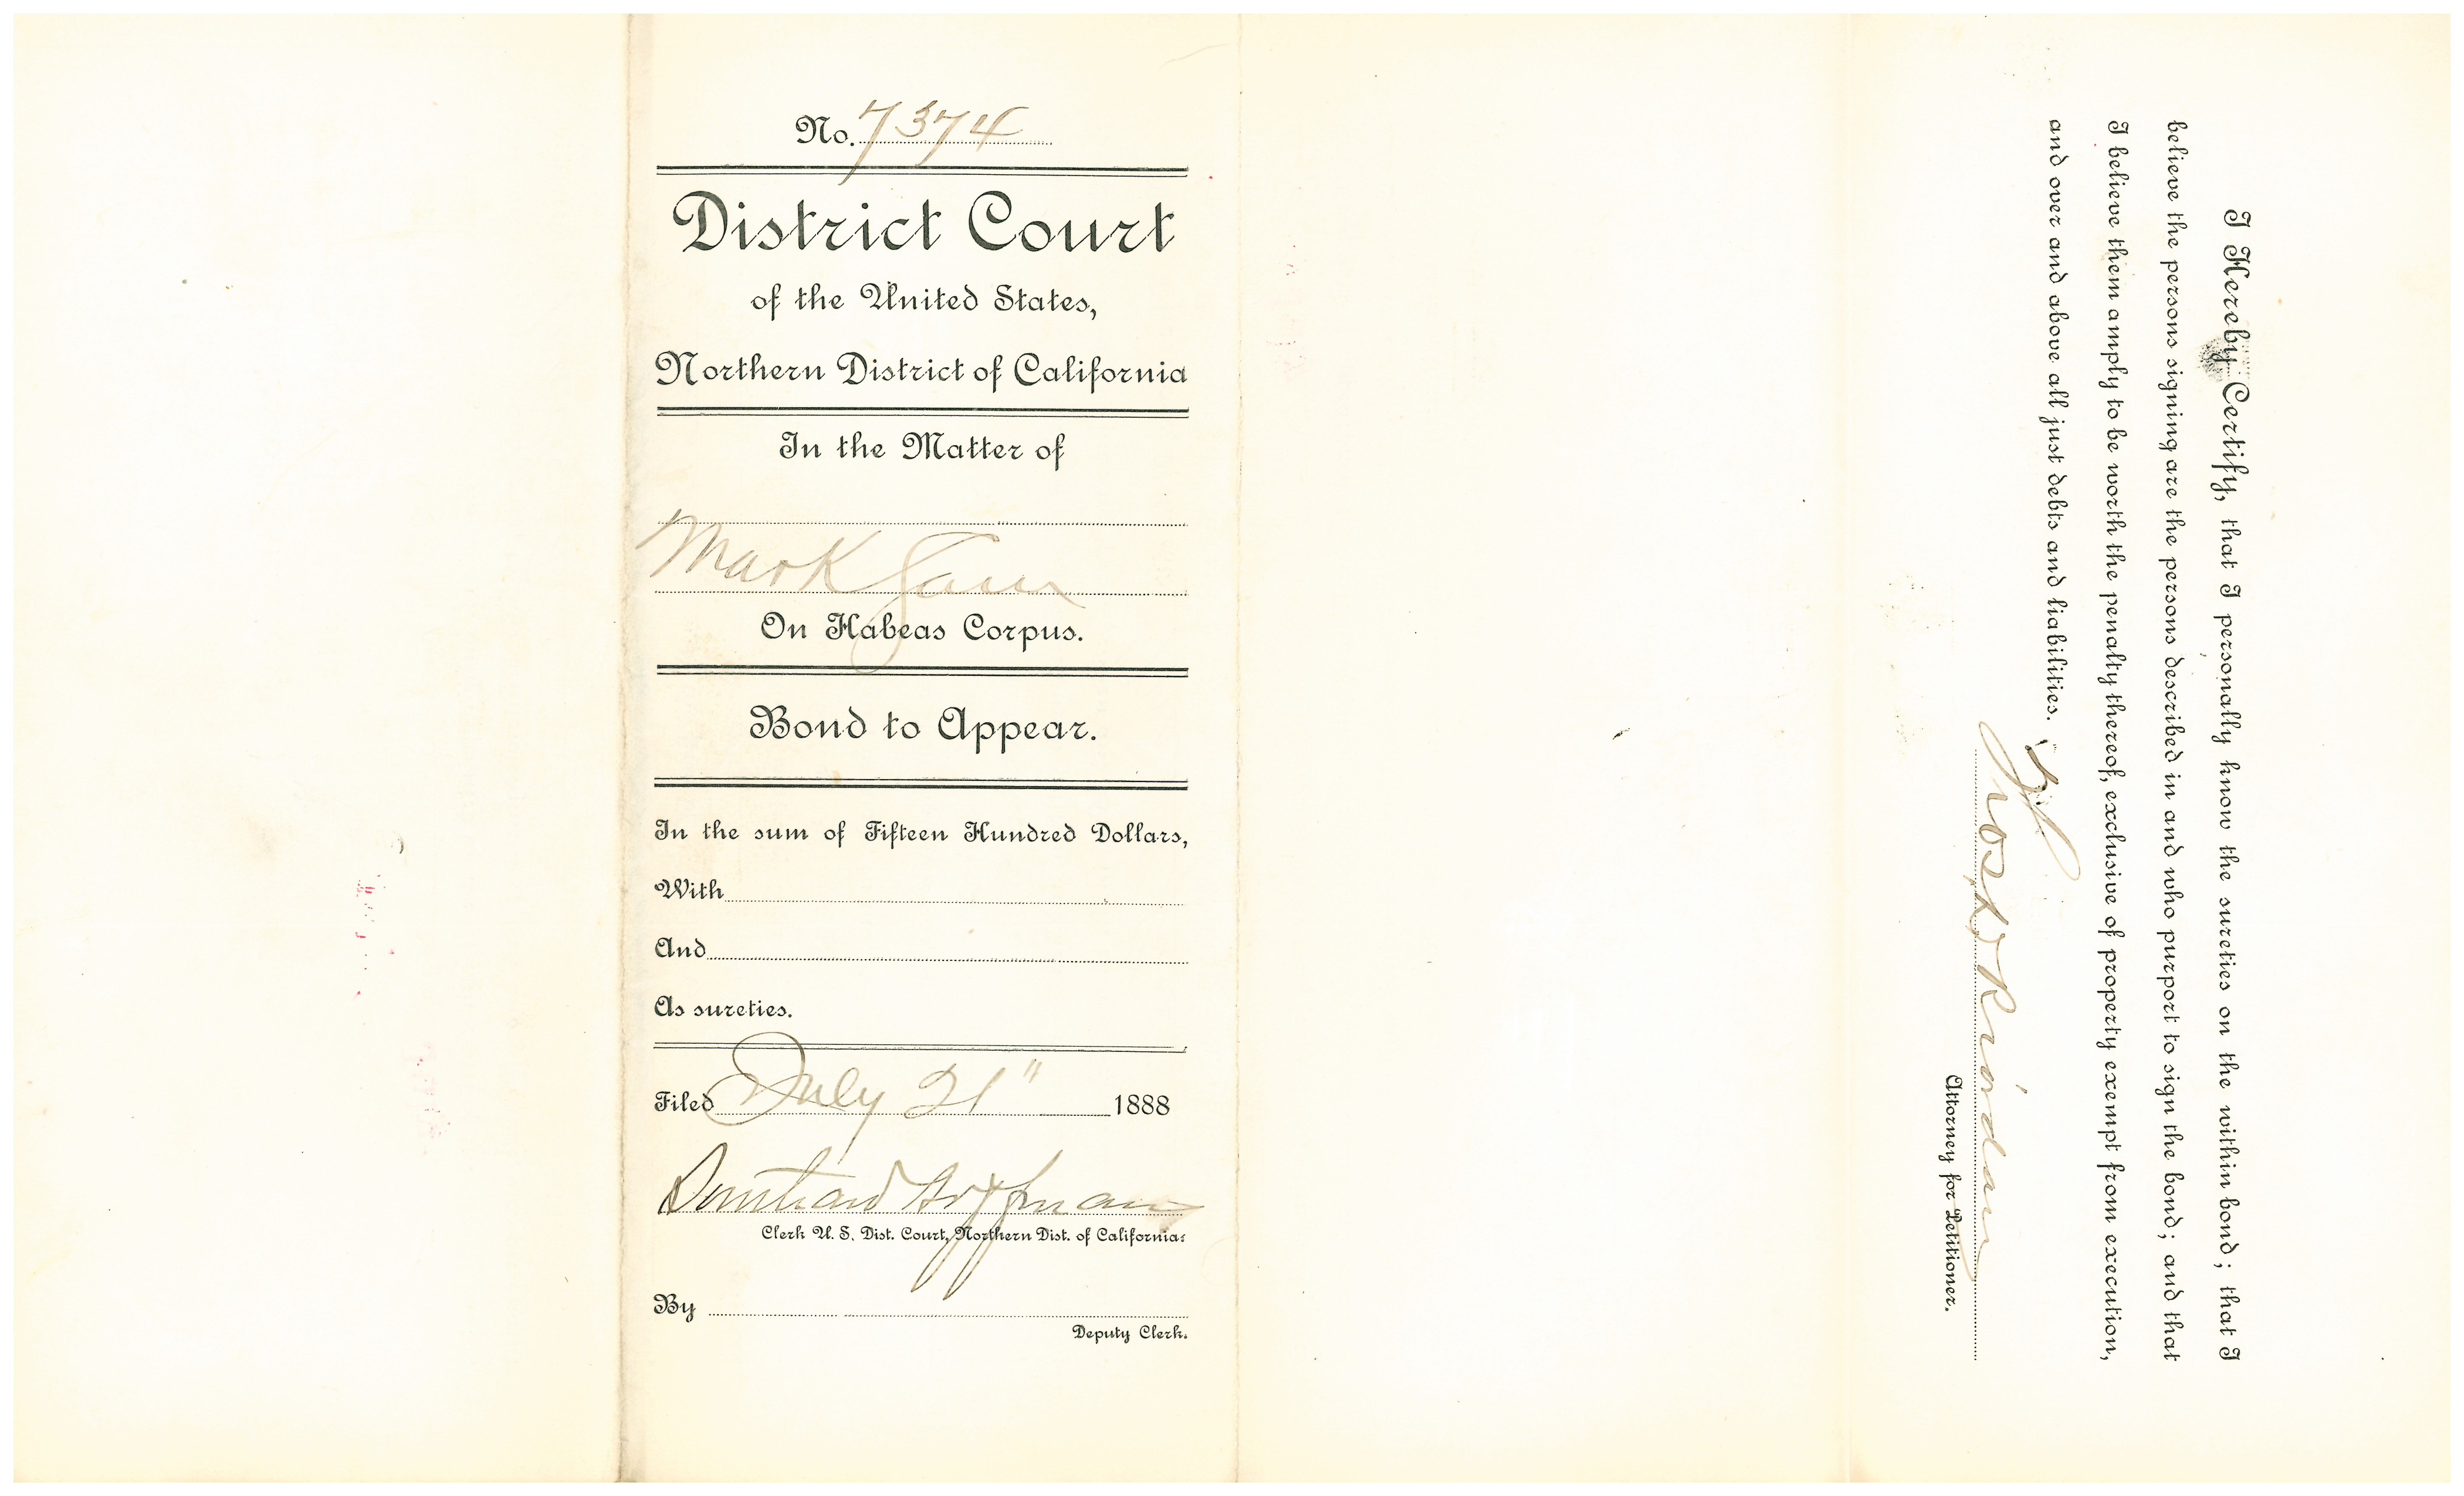 No. 7374
District Court
of the United States,
Northern District of California
In the Matter of
Mark
On Habeas Corpus.
Bond to Appear.
In the sum of Fifteen Hundred Dollars,
With
And
As sureties.
Filed July 21" 1888
Hoffman
Clerk U. S. Dist. Court, Northern Dist. of California.
By
Deputy Clerk.
I Hereby Certify, that I personally know the sureties on the within bond; that I
believe the persons signing are the persons described in and who purport to sign the bond; and that
I believe them amply to be worth the penalty thereof, exclusive of property exempt from execution,
and over and above all just debts and liabilities.
Riordan
Attorney for Petitioner.